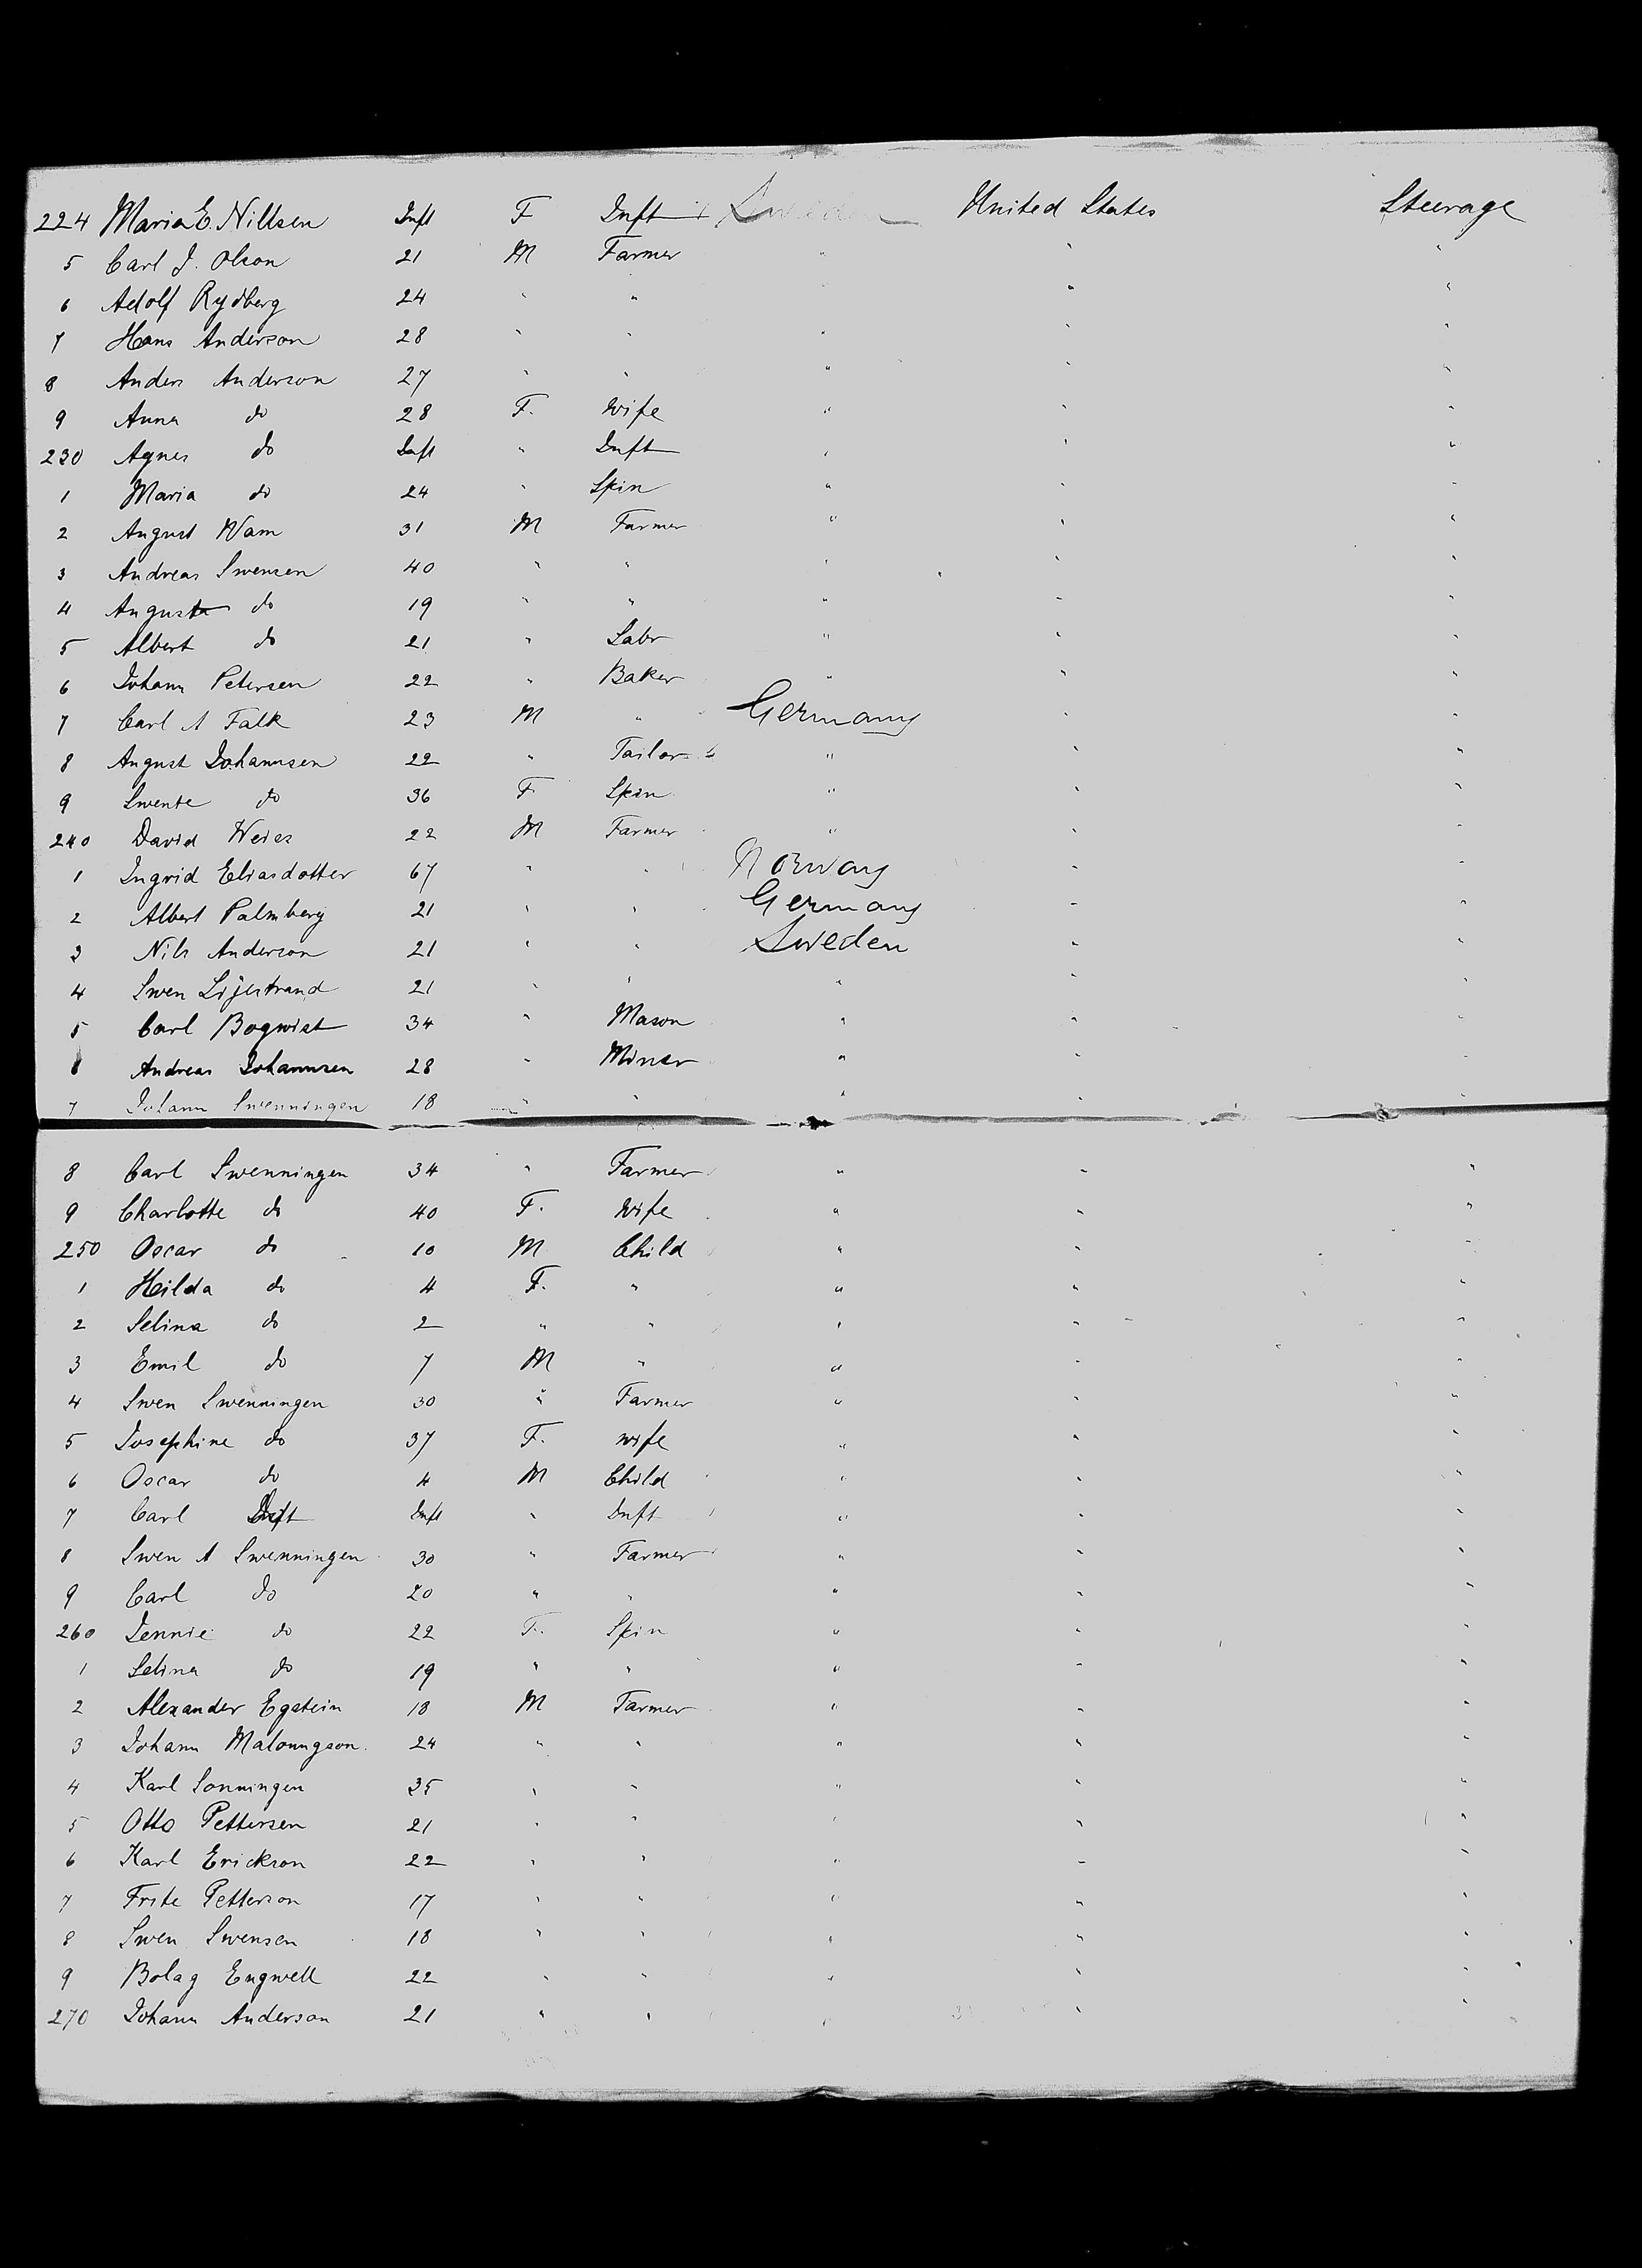 224 Maria E. Nillsen Inft F Inft Sweden United States Steerage
5 Carl J. Olson 21 M Farmer " " "
6 Adolf Rydberg 24 " " " " "
7 Hans Anderson 28 " " " " "
8 Anders Anderson 27 " " " " "
9 Anna do 28 F. Wife " " "
230 Agnes do Inft " Inft " " "
1 Maria do 24 " Spin " " "
2 August Wam 31 M Farmer " " "
3 Andreas Swensen 40 " " " " "
4 August do 19 " " " " "
5 Albert do 21 " Labr " " "
6 Johann Petersen 22 " Baker " " "
7 Carl A Falk 23 M " Germany " "
8 August Johannsen 22 " Tailor " " "
9 Swente do 36 F Spin " " "
240 David Weiss 22 M Farmer " " "
1 Ingrid Eliasdotter 67 " " Norway " "
2 Albert Palmberg 21 " " Germany " "
3 Nils Anderson 21 " " Sweden " "
4 Swen Lijestrand 21 " " " " "
5 Carl Bogwist 34 " Mason " " "
6 Andreas Johannsen 28 " Miner " " "
7 Johann Swenningen 18 " " " " "
8 Carl Swenningen 34 " Farmer " " "
9 Charlotte do 40 F. Wife " " "
250 Oscar do 10 M Child " " "
1 Heilda do 4 F. " " " "
2 Selina do 2 " " " " "
3 Emil do 7 M " " " "
4 Swen Swenningen 30 " Farmer " " "
5 Josephine do 37 F. Wife " " "
6 Oscar do 4 M Child " " "
7 Carl Inft " Inft " " "
8 Swen A Swenningen 30 " Farmer " " "
9 Carl do 20 " " " " "
260 Jennie do 22 F. Spin " " "
1 Selina do 19 " " " " "
2 Alexander Egstein 18 M Farmer " " "
3 Johann Malonngson 24 " " " " "
4 Karl Sonningen 35 " " " " "
5 Otto Pettersen 21 " " " " "
6 Karl Erickson 22 " " " " "
7 Frite Petterson 17 " " " " "
8 Swen Swensen 18 " " " " "
9 Bolag Engwell 22 " " " " "
270 Johann Anderson 21 " " " " "